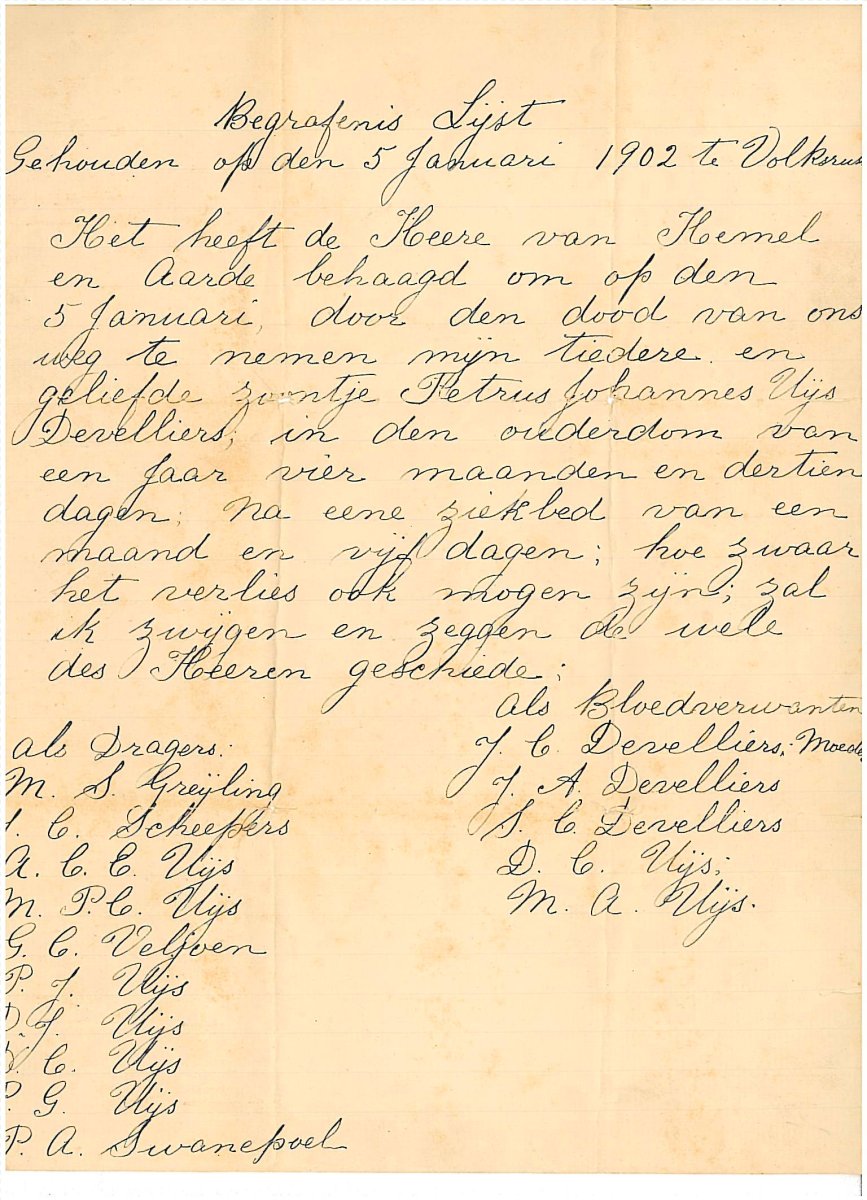 Begrafenis Lijst
Gehouden op den 5 Januari 1902 te Volksrus
Het heeft de Heere van Hemel
en Aarde behaagd om op den
5 Januari, door den dood van ons
weg te nemen mijn tiedere en
geliefde zoontje Petrus Johannes Uijs
Develliers; in den ouderdom van
een Jaar vier maanden en dertien
dagen; Na eene ziekbed van een
maand en vijf dagen; hoe zwaar
het verlies ook mogen zijn; zal
ik zwijgen en zeggen de wele
des Heeren geschiede;
als Bloedverwanten
J. C. Develliers; Moeder
J. A. Develliers
S. C. Develliers
D. C. Uijs;
M. A. Uijs.
als Dragers:
M. S. Greijling
C. Scheepers
A. C. E. Uijs
M. P. C. Uijs
G. C. Veljoen
P. J. Uijs
J. Uijs
C. Uijs
G. Uijs
P. A. Swanepoel